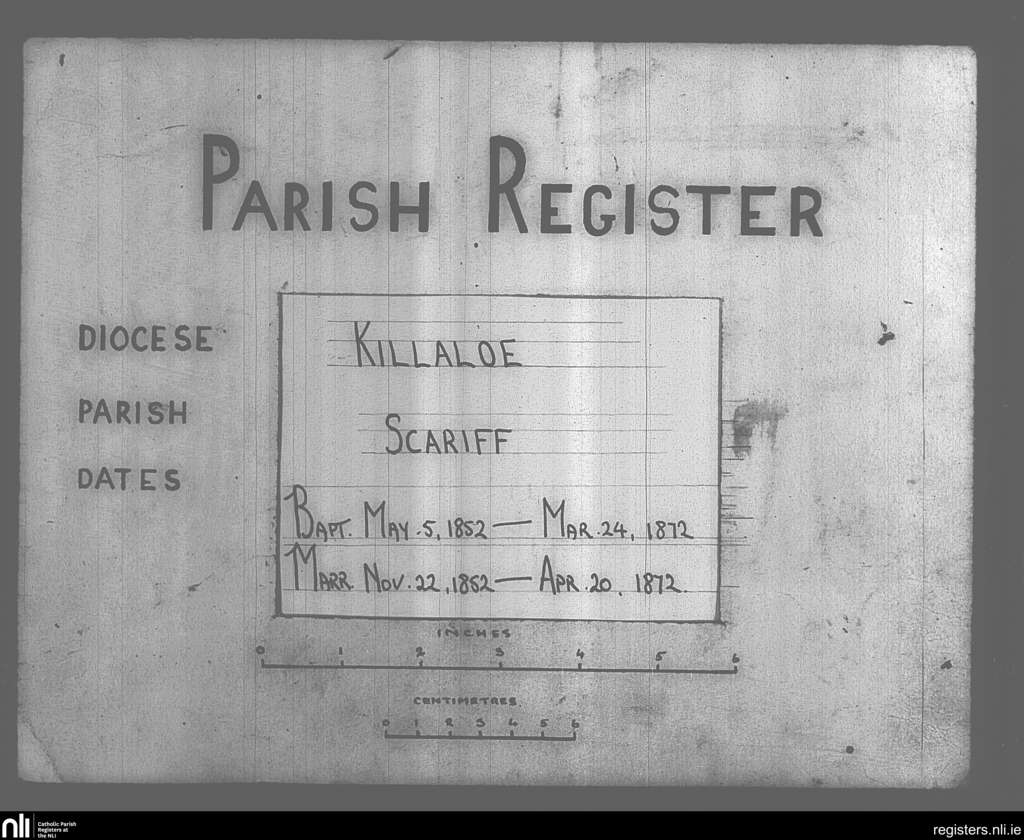 PARISH REGISTER
DIOCESE KILLALOE
PARISH SCARIFF
DATES
BAPT. MAY.5,1852 — MAR.24, 1872
MARR. NOV.22,1852 — APR.20, 1872.
INCHES
0 1 2 3 4 5 6
CENTIMETRES
0 1 2 3 4 5 6
nli Catholic Parish
Registers at
the NLI
registers.nli.ie